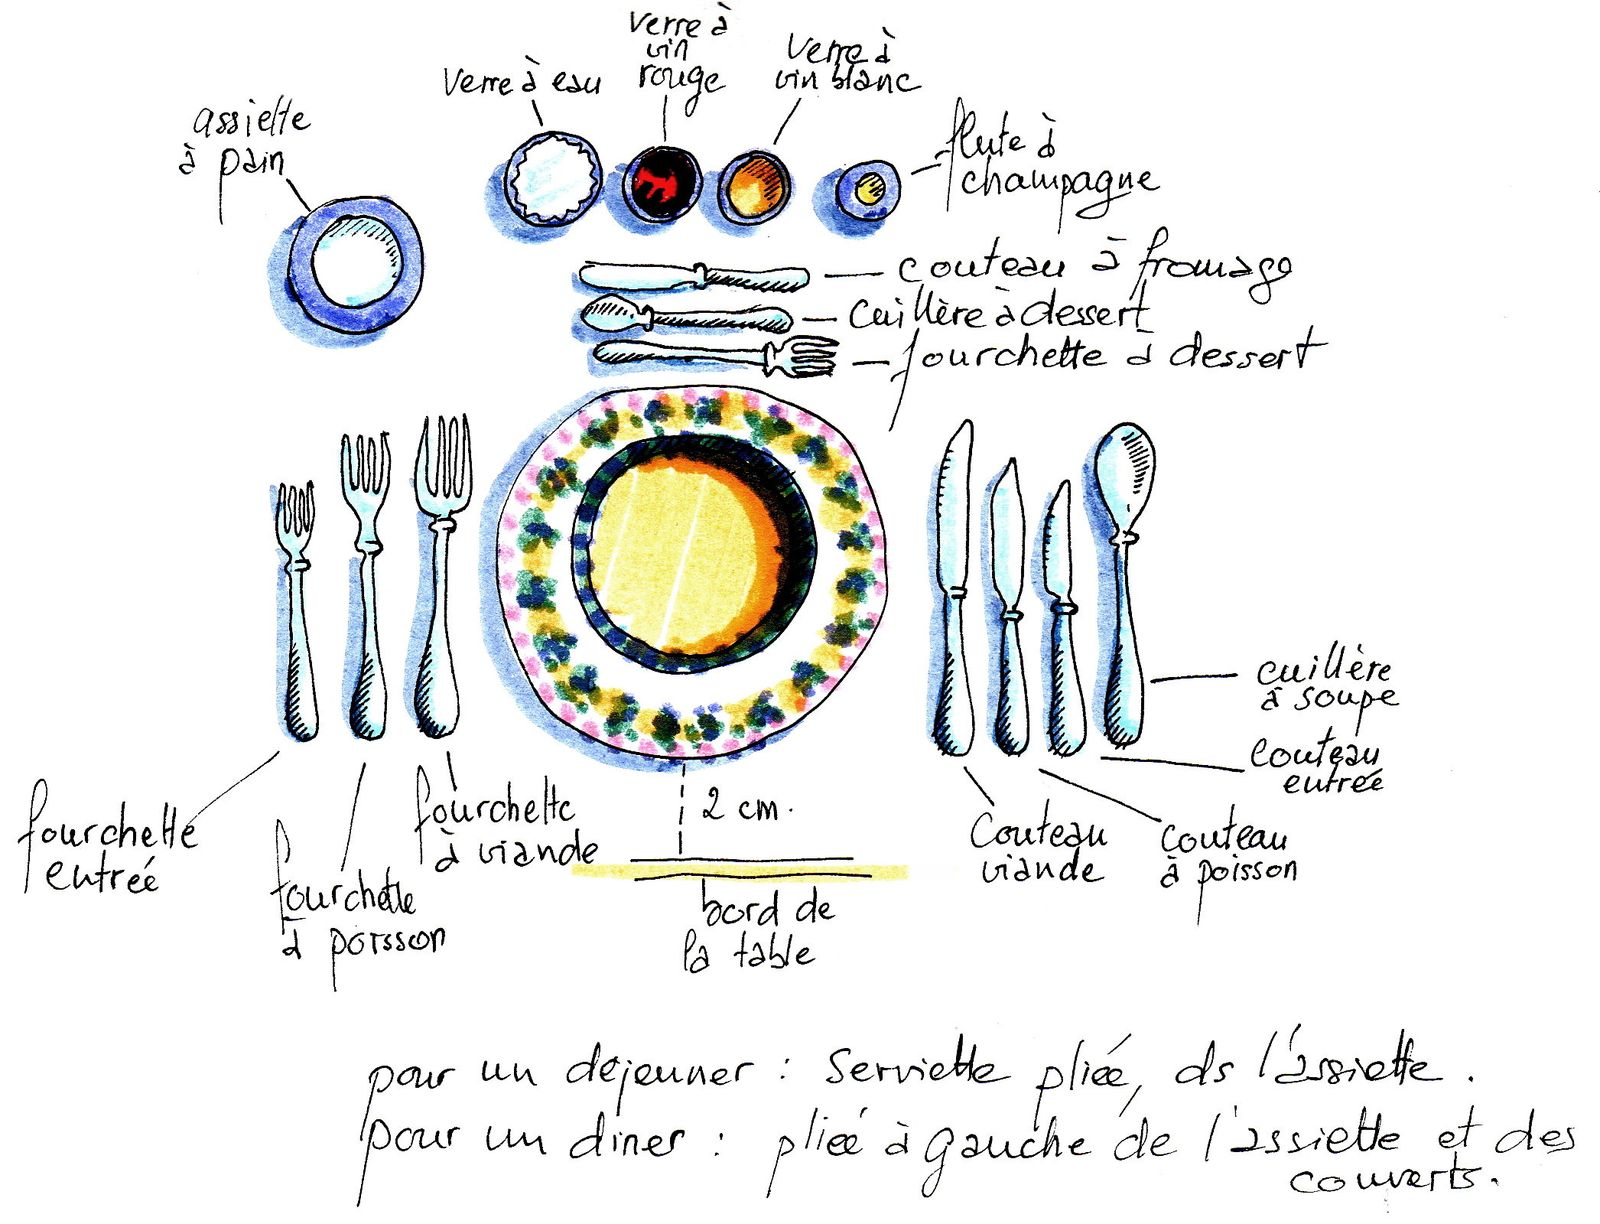 verre à
vin
rouge
verre à
vin blanc
verre à eau
assiette
à pain
flute à
champagne
couteau à fromage
cuillère à dessert
fourchette à dessert
cuillère
à soupe
couteau
entrée
fourchette
entrée
fourchette
à poisson
fourchette
à viande
2 cm.
bord de
la table
Couteau
viande
couteau
à poisson
pour un déjeuner : Serviette pliée, ds l'assiette.
pour un diner : pliée à gauche de l'assiette et des
couverts.